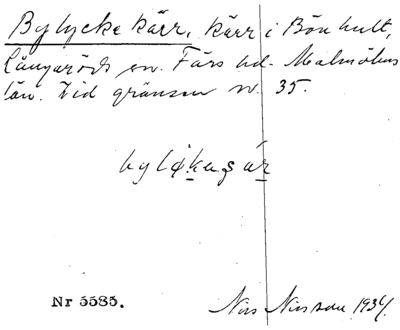 Bylycke kärr, kärr i Bönhult,
Långaröds sn. Färs hd. Malmöhus
län. Vid gränsen n. 35.
Nr 5585. Nils Nilsson 1934.